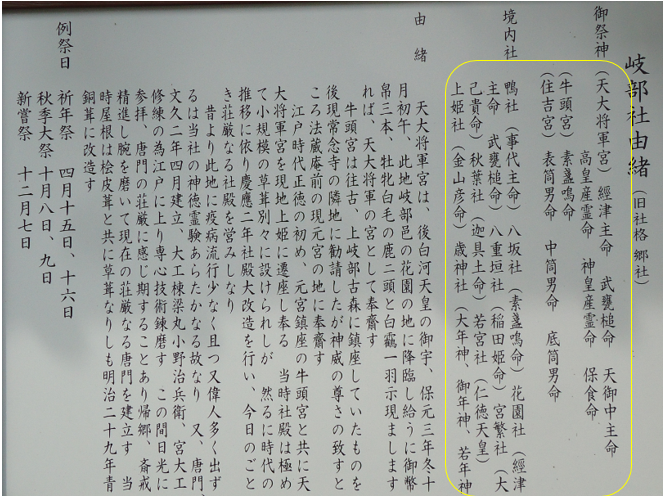 岐部社由緒(旧社格 郷社)
御祭神(天大将軍宮)經津主命 武甕槌命 天御中主命
高皇産霊命 神皇産霊命 保食命
(牛頭宮)素盞鳴命
(住吉宮)表筒男命 中筒男命 底筒男命
境内社 鴨社(事代主命)八坂社(素盞鳴命)花園社(經津
主命 武甕槌命)八重垣社(稲田姫命)宮繁社(大
己貴命)秋葉社(迦具土命)若宮社(仁徳天皇)
上姫社(金山彦命)歳神社(大年神、御年神、若年神
由緒
天大将軍宮は、後白河天皇の御宇、保元三年冬十
月初午、此地岐部邑の花園の地に降臨し給うに御幣
帛三本、牡牝白毛の鹿二頭と白鷴一羽示現まします
れば、天大将軍の宮として奉齋す
牛頭宮は往古、上岐部古森に鎮座していたものを
後現常念寺の隣地に勧請したが神威の尊さの致すと
ころ法蔵庵前の現元宮の地に奉齋す
江戸時代正徳の初め、元宮鎮座の牛頭宮と共に天
大将軍宮を現地上姫に遷座し奉る 当時社殿は極め
て小規模の草葺別々に設けられしが 然るに時代の
推移に依り慶應二年社殿大改造を行い、今日のごと
き荘厳なる社殿を営みしなり
昔より此地に疫病流行少なく且つ又偉人多く出ず
るは当社の神徳霊験あらたかなる故なり 又、唐門、
文久二年四月建立、大工棟梁丸小野治兵衛、宮大工
修練の為江戸に上り専心技術錬磨す この間日光に
参拝、唐門の荘厳に感じ期することあり帰郷、斎戒
精進し腕を磨いて現在の荘厳なる唐門を建立す 当
時屋根は桧皮葺と共に草葺なりしも明治二十九年青
銅葺に改造す
例祭日 祈年祭 四月十五日、十六日
秋季大祭 十月八日、九日
新嘗祭 十二月七日